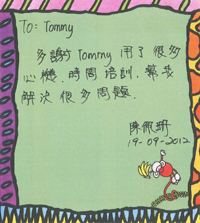 To: Tommy
多謝 Tommy 用了很多
心機、時間培訓、幫我
解決很多問題.
陳佩珊
19-09-2012